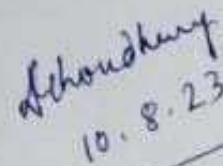 Schoudhury
10.8.23